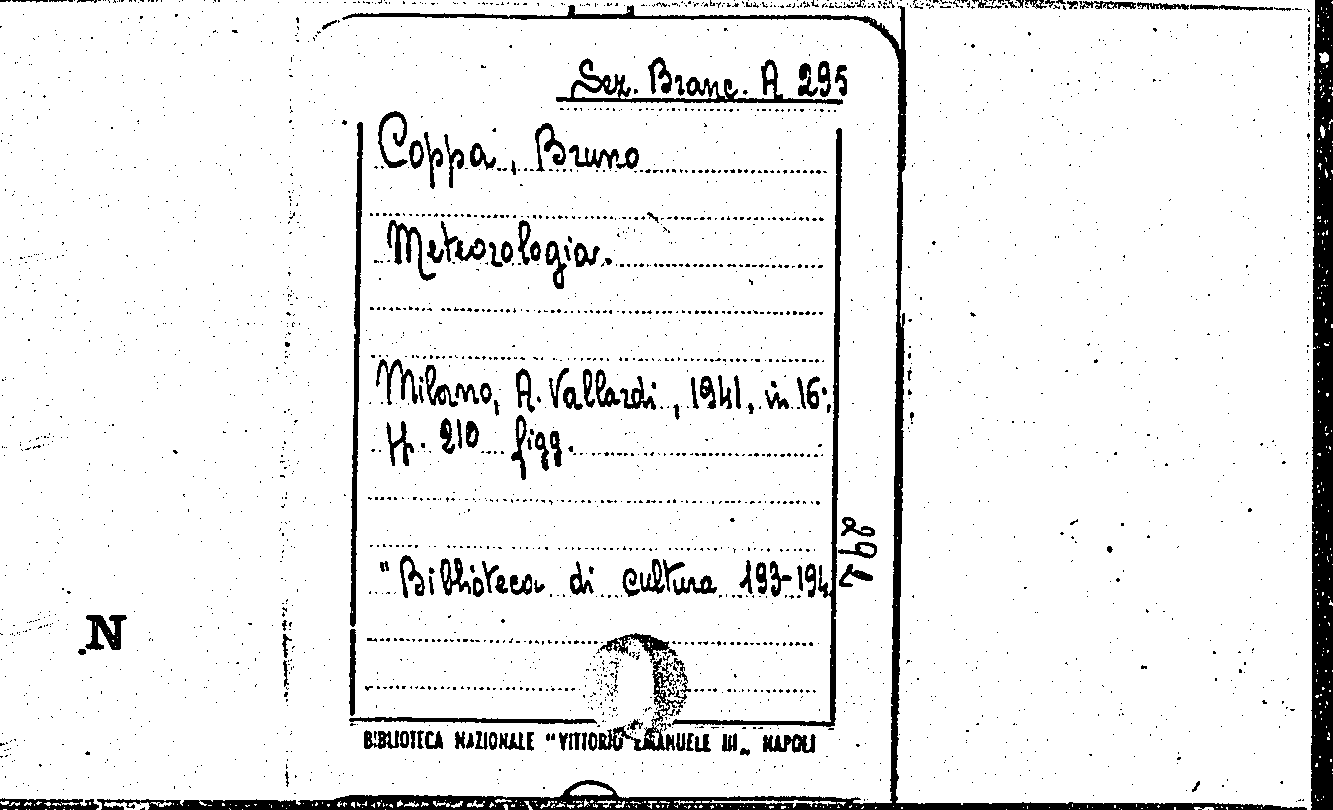 Sez. Branc. A 295
Coppa, Bruno
Meteorologia.
Milano, A. Vallardi, 1941, in 16°,
pp. 210 figg.
"Biblioteca di cultura 193-194
297
N
BIBLIOTECA NAZIONALE "VITTORIO EMANUELE III„ NAPOLI